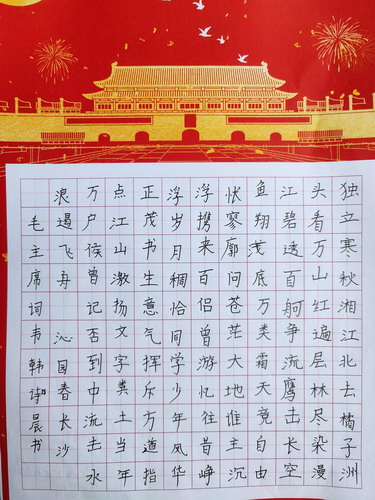 独立寒秋湘江北去橘子洲
头看万山红遍层林尽染漫
江碧透百舸争流鹰击长空
鱼翔浅底万类霜天竞自由
怅寥廓问苍茫大地谁主沉
浮携来百侣曾游忆往昔峥
浮岁月稠恰同学少年风华
正茂书生意气挥斥方遒指
点江山激扬文字粪土当年
万户侯曾记否到中流击水
浪遏飞舟 沁园春长沙
毛主席词 韦韩诗晨书